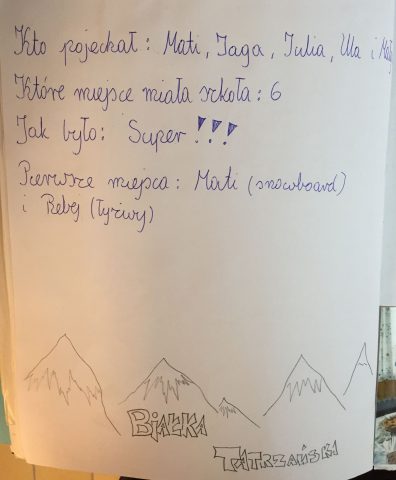 Kto pojechał: Mati, Jaga, Julia, Ula i
Które miejsce miała szkoła: 6
Jak było: Super!!!
Pierwsze miejsca: Mati (snowboard)
i Bebej (łyżwy)
Białka
Tatrzański